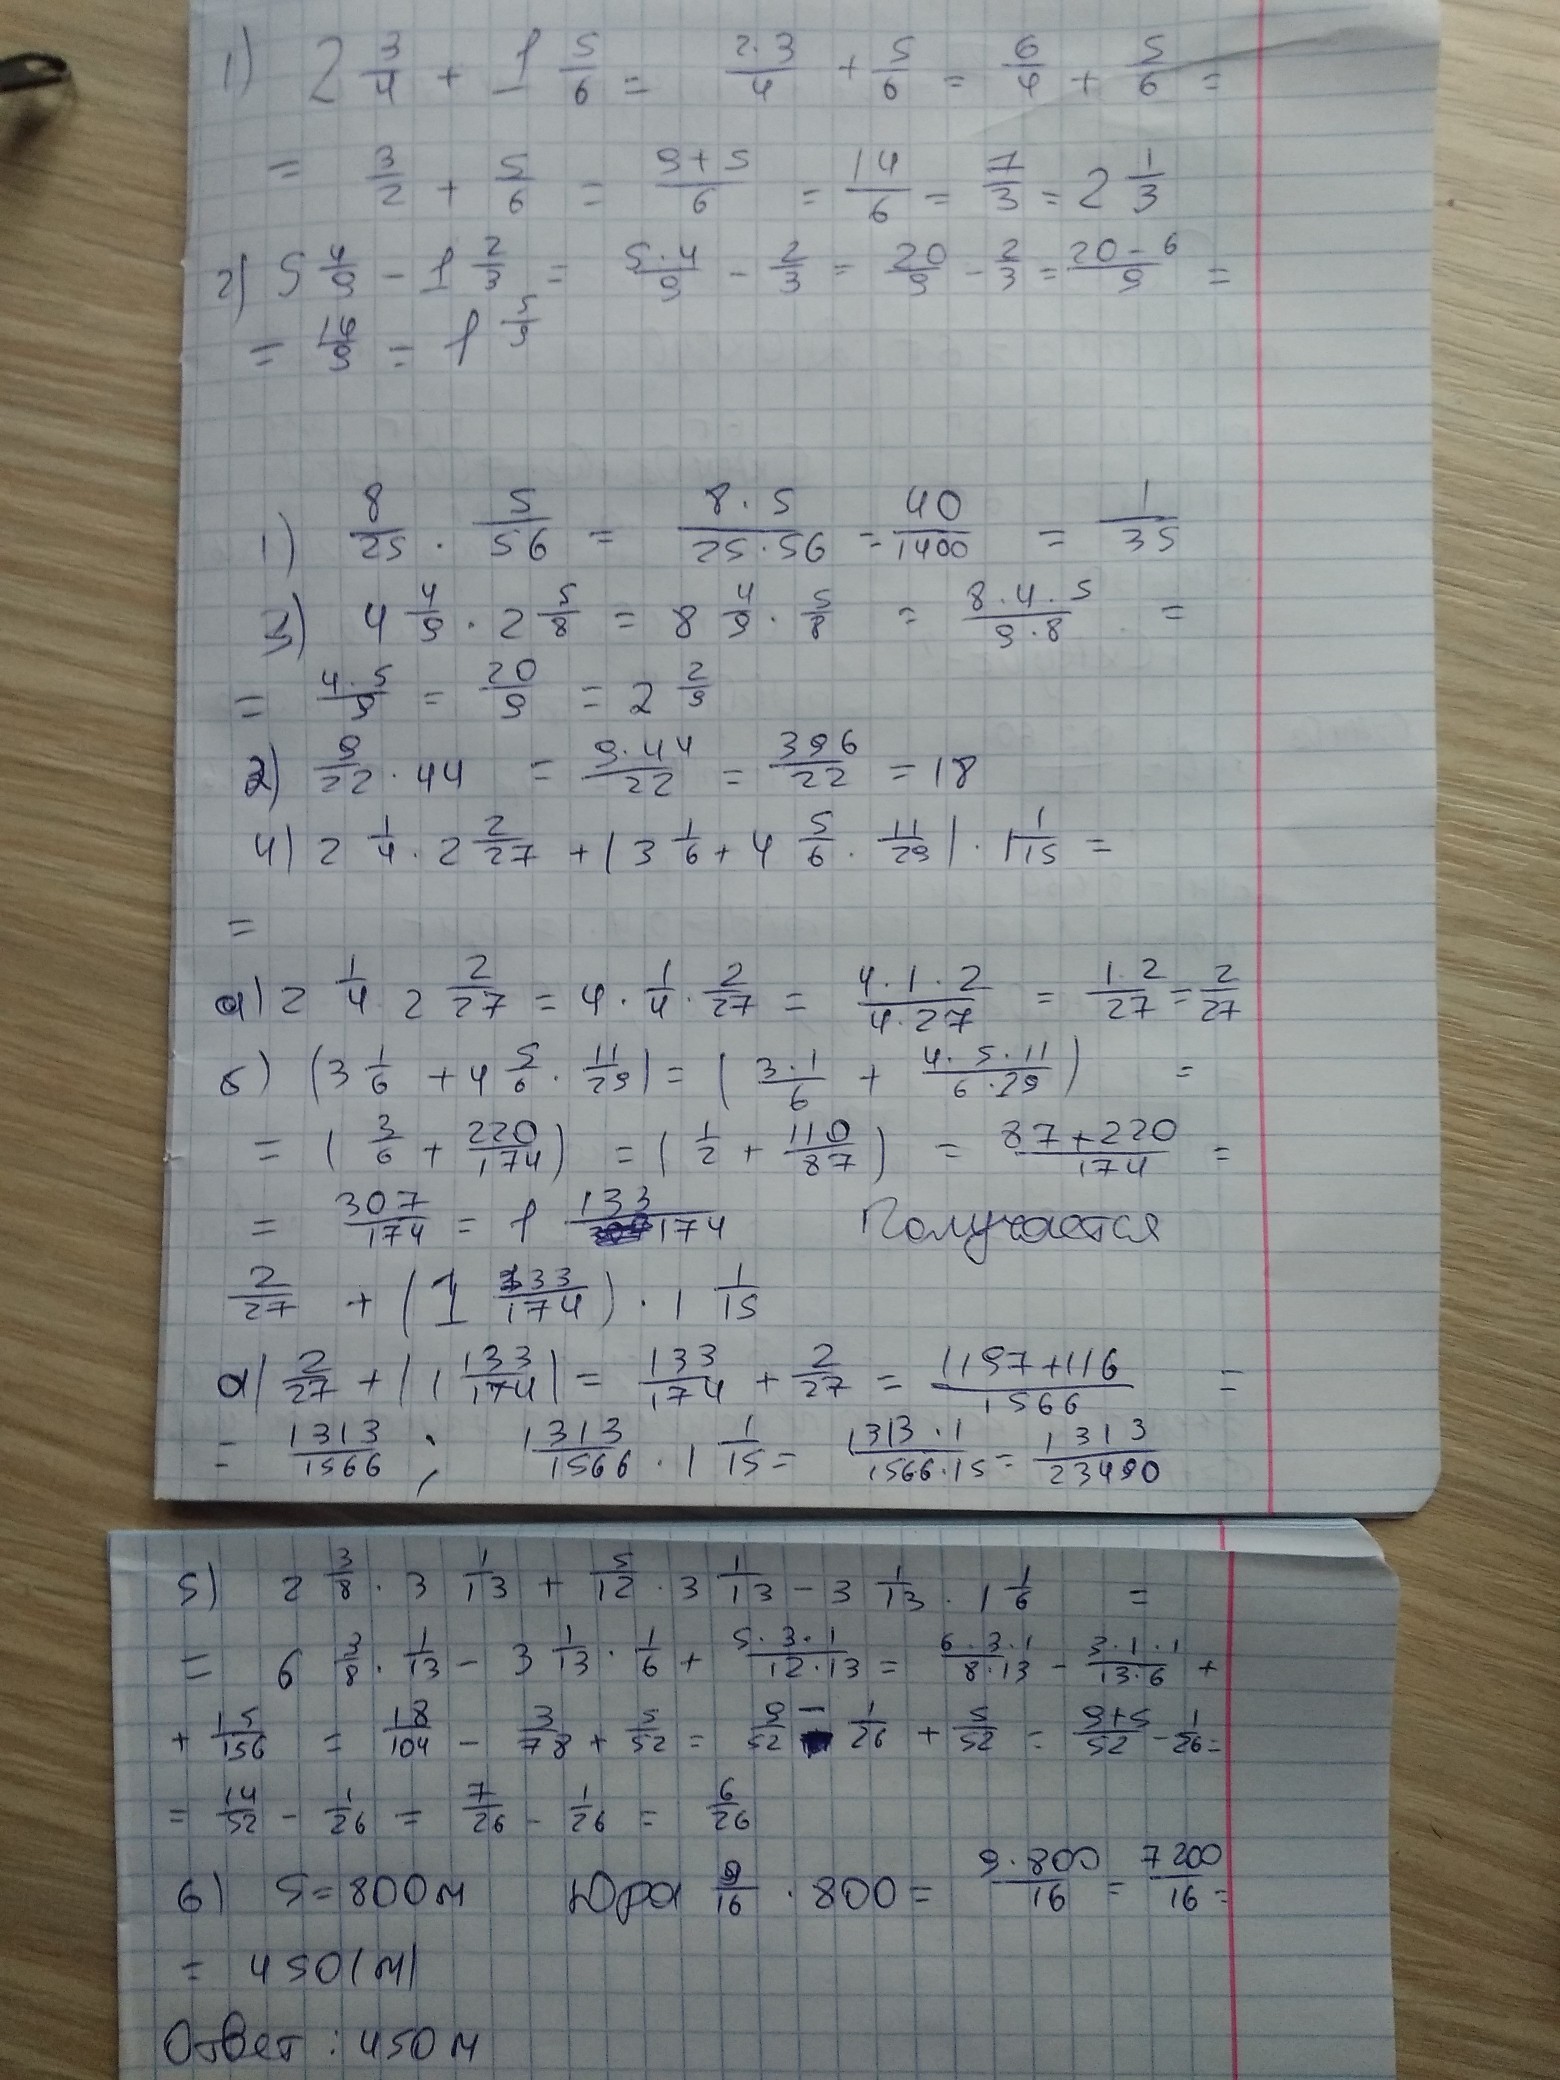 1) 2 3/4 + 1 5/6 = 2·3/4 + 5/6 = 6/4 + 5/6 =
= 3/2 + 5/6 = 9+5/6 = 14/6 = 7/3 = 2 1/3
2) 5 4/9 - 1 2/3 = 5·4/9 - 2/3 = 20/9 - 2/3 = 20-6/9 =
= 14/9 = 1 5/9
1) 8/25 · 5/56 = 8·5/25·56 = 40/1400 = 1/35
3) 4 4/9 · 2 5/8 = 8 4/9 · 5/8 = 8·4·5/9·8 =
= 4·5/9 = 20/9 = 2 2/9
2) 9/22 · 44 = 9·44/22 = 396/22 = 18
4) 2 1/4 · 2 2/27 + (3 1/6 + 4 5/6 · 11/29) · 1 1/15 =
=
а) 2 1/4 · 2 2/27 = 4 · 1/4 · 2/27 = 4·1·2/4·27 = 1·2/27 = 2/27
б) (3 1/6 + 4 5/6 · 11/29) = (3·1/6 + 4·5·11/6·29) =
= (3/6 + 220/174) = (1/2 + 110/87) = 87+220/174 =
= 307/174 = 1 133/174 Получается
2/27 + (1 133/174) · 1 1/15
а) 2/27 + (1 133/174) = 133/174 + 2/27 = 1197+116/1566 =
= 1313/1566 ; 1313/1566 · 1 1/15 = 1313·1/1566·15 = 1313/23490
5) 2 3/8 · 3 1/13 + 5/12 · 3 1/13 - 3 1/13 · 1 1/6 =
= 6 3/8 · 1/13 - 3 1/13 · 1/6 + 5·3·1/12·13 = 6·3·1/8·13 - 3·1·1/13·6 +
+ 15/156 = 18/104 - 3/78 + 5/52 = 9/52 - 1/26 + 5/52 = 9+5/52 - 1/26 =
= 14/52 - 1/26 = 7/26 - 1/26 = 6/26
6) S = 800м Юра 9/16 · 800 = 9·800/16 = 7200/16 =
= 450(м)
Ответ : 450м